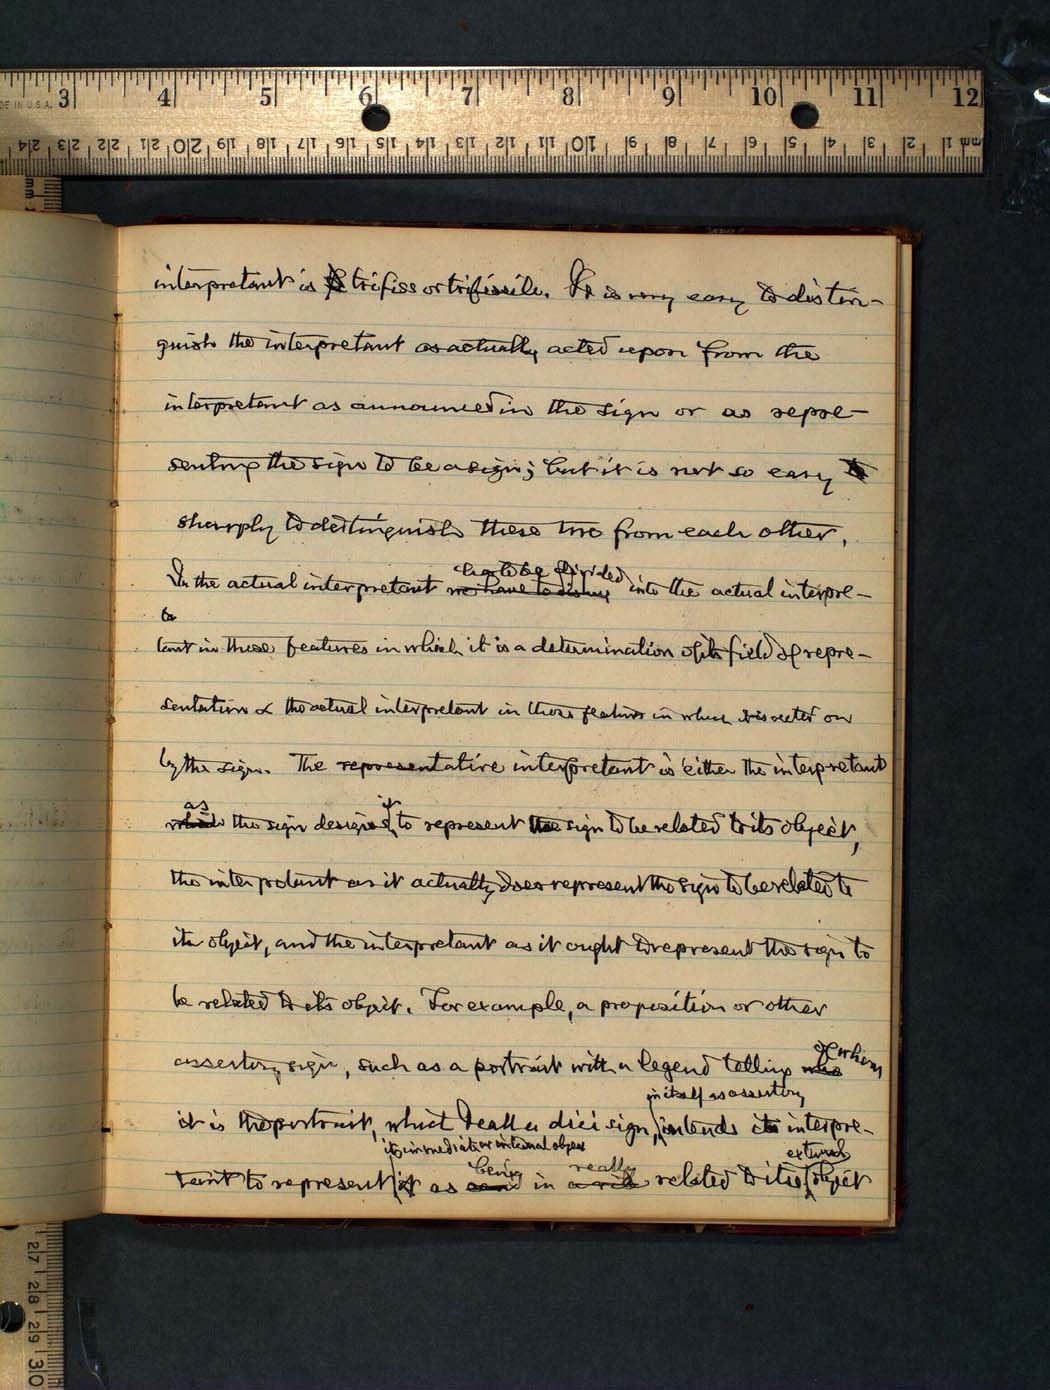 MADE IN U.S.A. 3 4 5 6 7 8 9 10 11 12
24 23 22 21 20 19 18 17 16 15 14 13 12 11 10 9 8 7 6 5 4 3 2 1 mm
mm
interpretant is trifiss or trifissile. It is very easy to distin-
guish the interpretant as actually acted upon from the
interpretant as announced in the sign or as repre-
senting the sign to be a sign; but it is not so easy to
sharply to distinguish these two from each other.
has to be divided
In the actual interpretant we have to disting into the actual interpre-
ta
tant in those features in which it is a determination of its field of repre-
sentation & the actual interpretant in those features in which it is acted on
by the sign. The representative interpretant is either the interpretant
as it
which the sign designed to represent the sign to be related to its object,
the interpretant as it actually does represent the sign to be related to
its object, and the interpretant as it ought to represent the sign to
be related to its object. For example, a proposition or other
asserting sign, such as a portrait with a legend telling who
of whom
in itself as assertory
it is the portrait, which I call a dicisign, intends its interpre-
its immediate or internal object being really external
tant to represent it as in related to its object
27 28 29 30